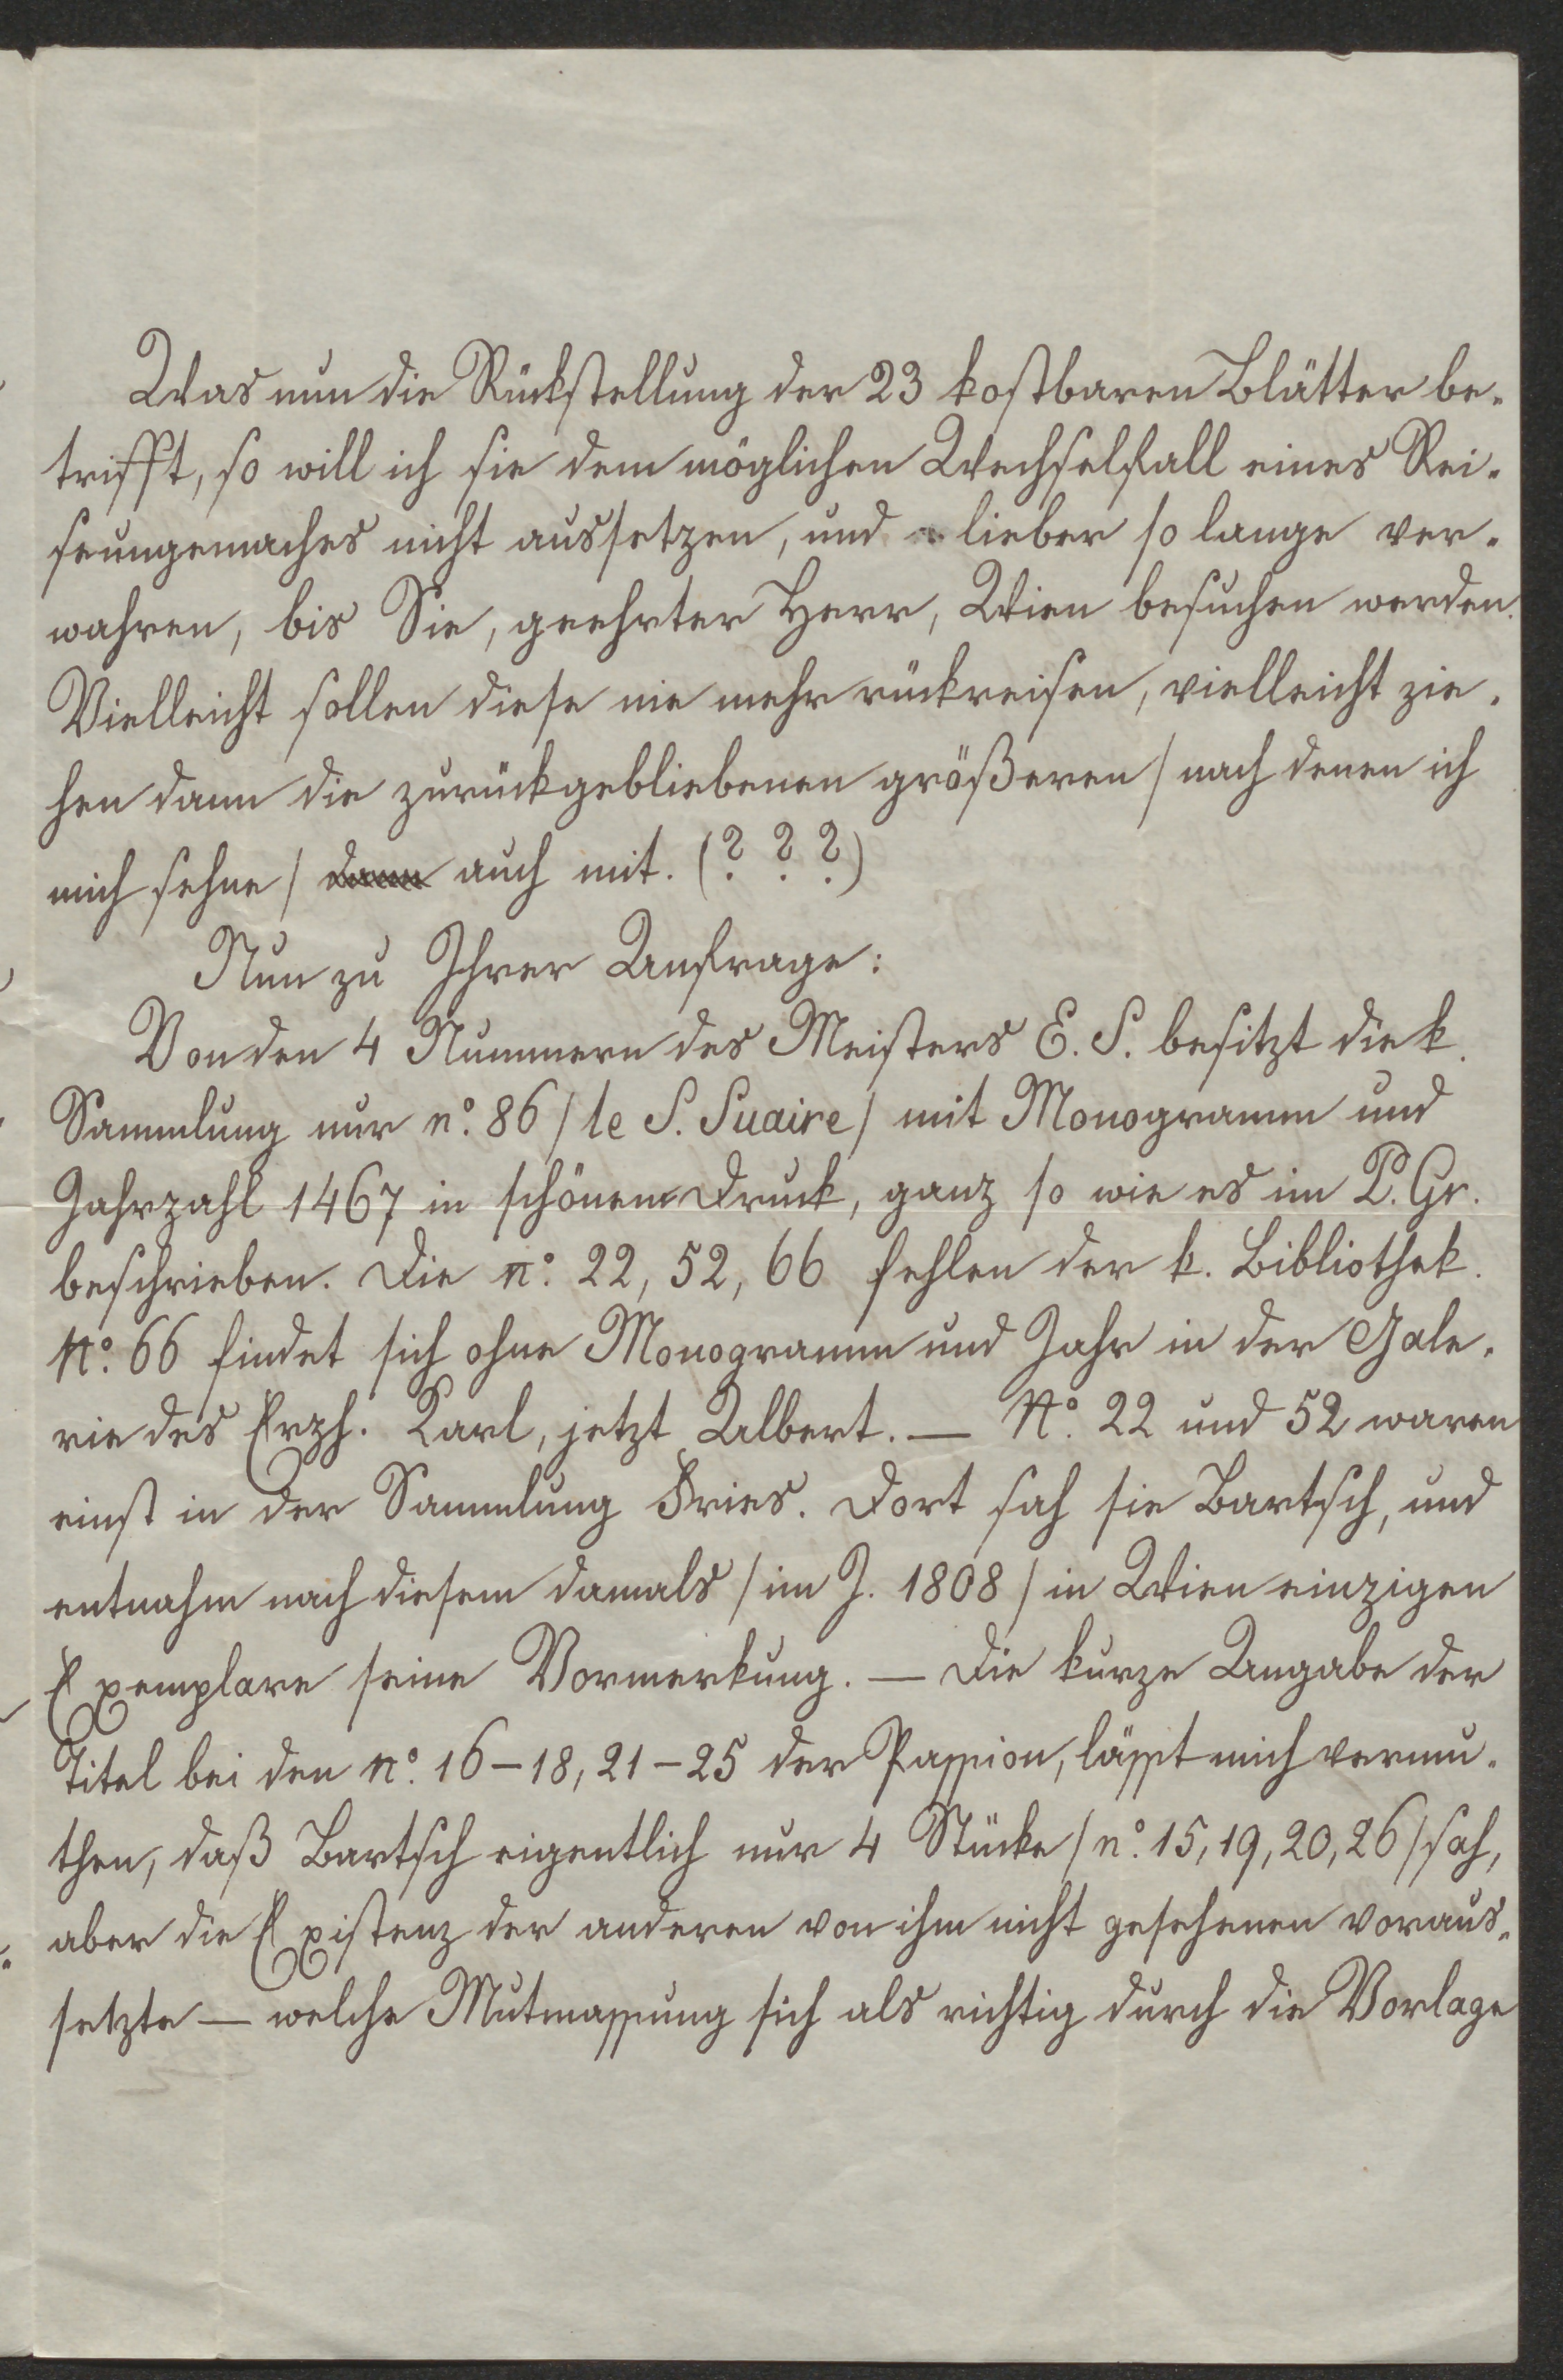 Was nun die Rückstellung der 23 kostbaren Blätter be-
trifft, so will ich sie dem möglichen Wechselfall eines Rei-
seungemaches nicht aussetzen, und lieber so lange ver-
wahren, bis Sie, geehrter Herr, Wien besuchen werden.
Vielleicht sollen diese nie mehr rückreisen, vielleicht zie-
hen dann die zurückgebliebenen größeren / nach denen ich
mich sehne / dann auch mit. (? ? ?)
Nun zu Ihrer Anfrage:
Von den 4 Nummern des Meisters E. S. besitzt die k.
Sammlung nur n° 86 / le S. Suaire / mit Monogramm und
Jahrzahl 1467 in schönem Druck, ganz so wie es im P. Gr.
beschrieben. Die n° 22, 52, 66 fehlen der k. Bibliothek.
N° 66 findet sich ohne Monogramm und Jahr in der Gale-
rie des Erzh. Karl, jetzt Albert. — N° 22 und 52 waren
einst in der Sammlung Fries. Dort sah sie Bartsch, und
entnahm nach diesem damals / im J. 1808 / in Wien einzigen
Exemplare seine Vormerkung. — Die kurze Angabe der
Titel bei den n° 16–18, 21–25 der Passion, lässt mich vermu-
then, daß Bartsch eigentlich nur 4 Stücke / n° 15, 19, 20, 26 / sah,
aber die Existenz der anderen von ihm nicht gesehenen voraus-
setzte — welche Mutmassung sich als richtig durch die Vorlage